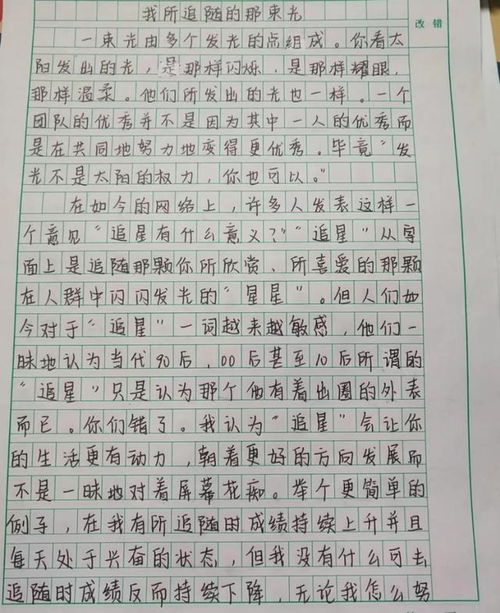 我所追随的那束光
改错
一束光由多个发光的点组成。你看太
阳发出的光，是那样闪烁，是那样耀眼，
那样温柔。他们所发出的光也一样。一个
团队的优秀并不是因为其中一人的优秀而
是在共同地努力地变得更优秀。毕竟“发
光不是太阳的权力，你也可以。”
在如今的网络上，许多人发表这样一
个意见“追星有什么意义？”“追星”从字
面上是追随那颗你所欣赏、所喜爱的那颗
在人群中闪闪发光的“星星”。但人们如
今对于“追星”一词越来越敏感，他们一
昧地认为当代90后，00后甚至10后所谓的
“追星”只是认为那个他有着出圈的外表
而已。你们错了。我认为“追星”会让你
的生活更有动力，朝着更好的方向发展而
不是一昧地对着屏幕花痴。举个更简单的
例子，在我有所追随时成绩持续上升并且
每天处于兴奋的状态，但我没有什么可去
追随时成绩反而持续下降，无论我怎么努